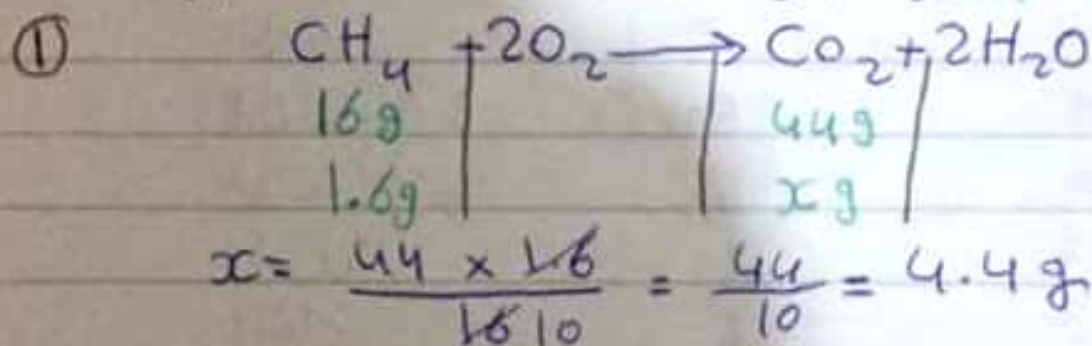 ① CH₄ + 2O₂ → Co₂ + 2H₂O
16g 44g
1.6g x g
x = 44 × 1.6 / 16 10 = 44 / 10 = 4.4 g